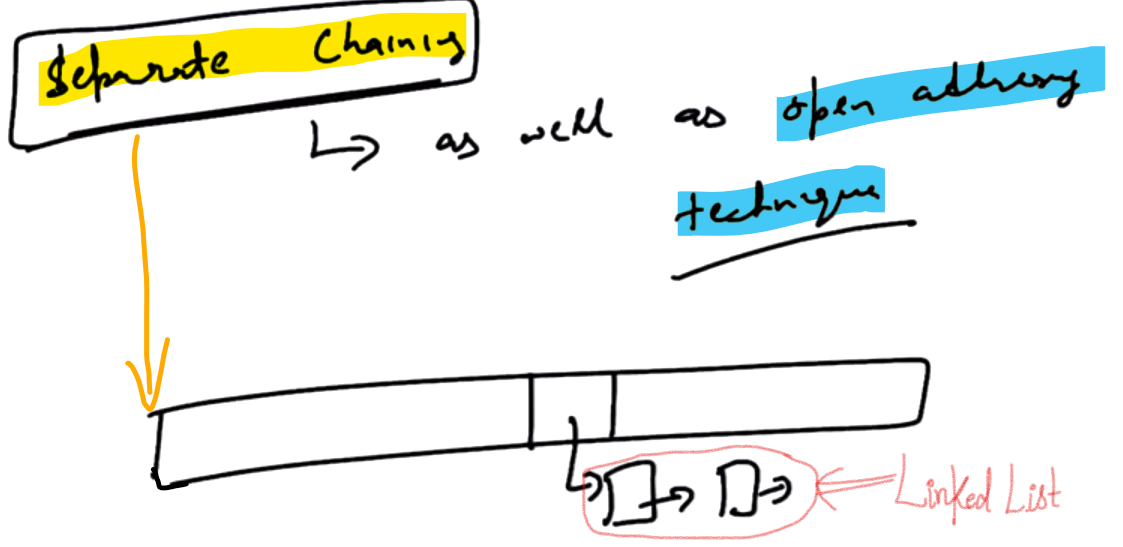 Separate Chaining
↳ as well as open addressing
technique
Linked List